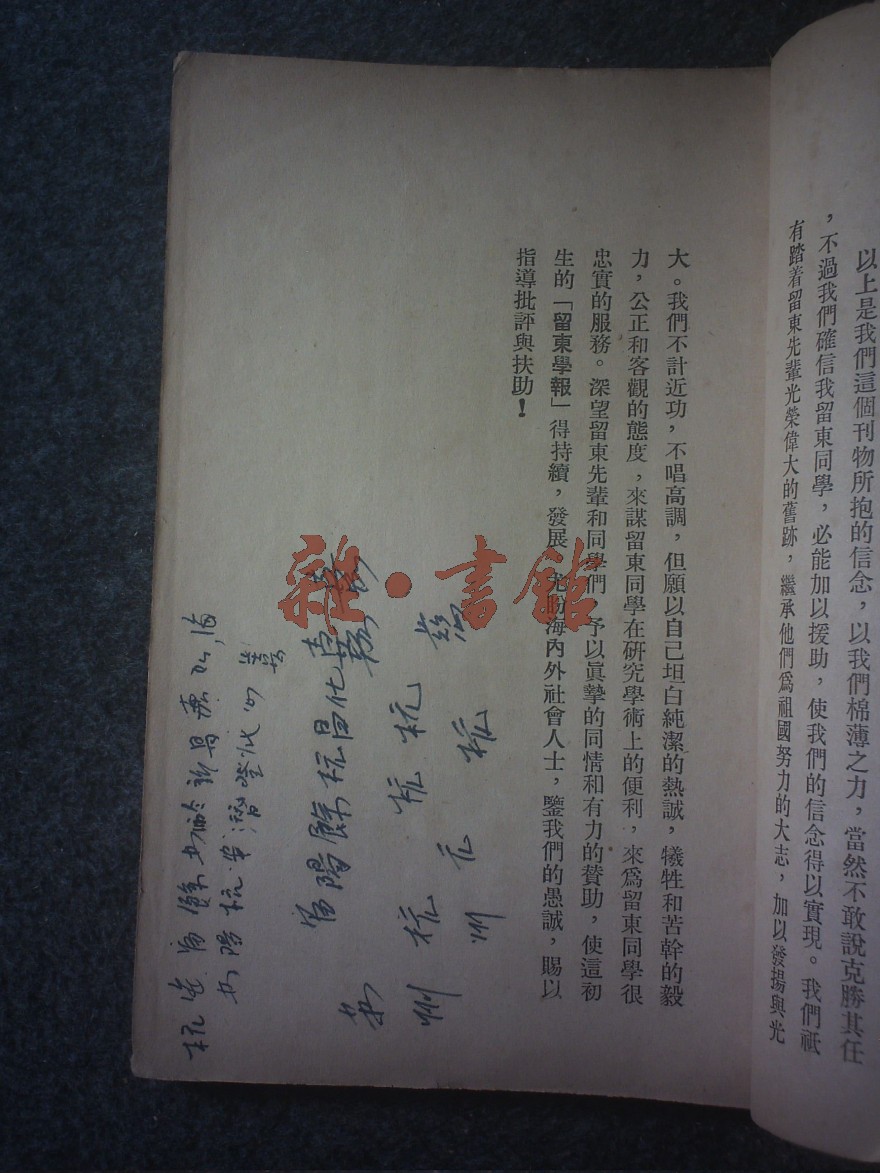 以上是我們這個刊物所抱的信念，以我們棉薄之力，當然不敢說克勝其任
，不過我們確信我留東同學，必能加以援助，使我們的信念得以實現。我們祇
有踏着留東先輩光榮偉大的舊跡，繼承他們爲祖國努力的大志，加以發揚與光
大。我們不計近功，不唱高調，但願以自己坦白純潔的熱誠，犧牲和苦幹的毅
力，公正和客觀的態度，來謀留東同學在硏究學術上的便利，來爲留東同學很
忠實的服務。深望留東先輩和同學們，予以眞摯的同情和有力的贊助，使這初
生的「留東學報」得持續，發展，尤盼海內外社會人士，鑒我們的愚誠，賜以
指導批評與扶助！
雜·書館
杭州
富陽餘杭昌化